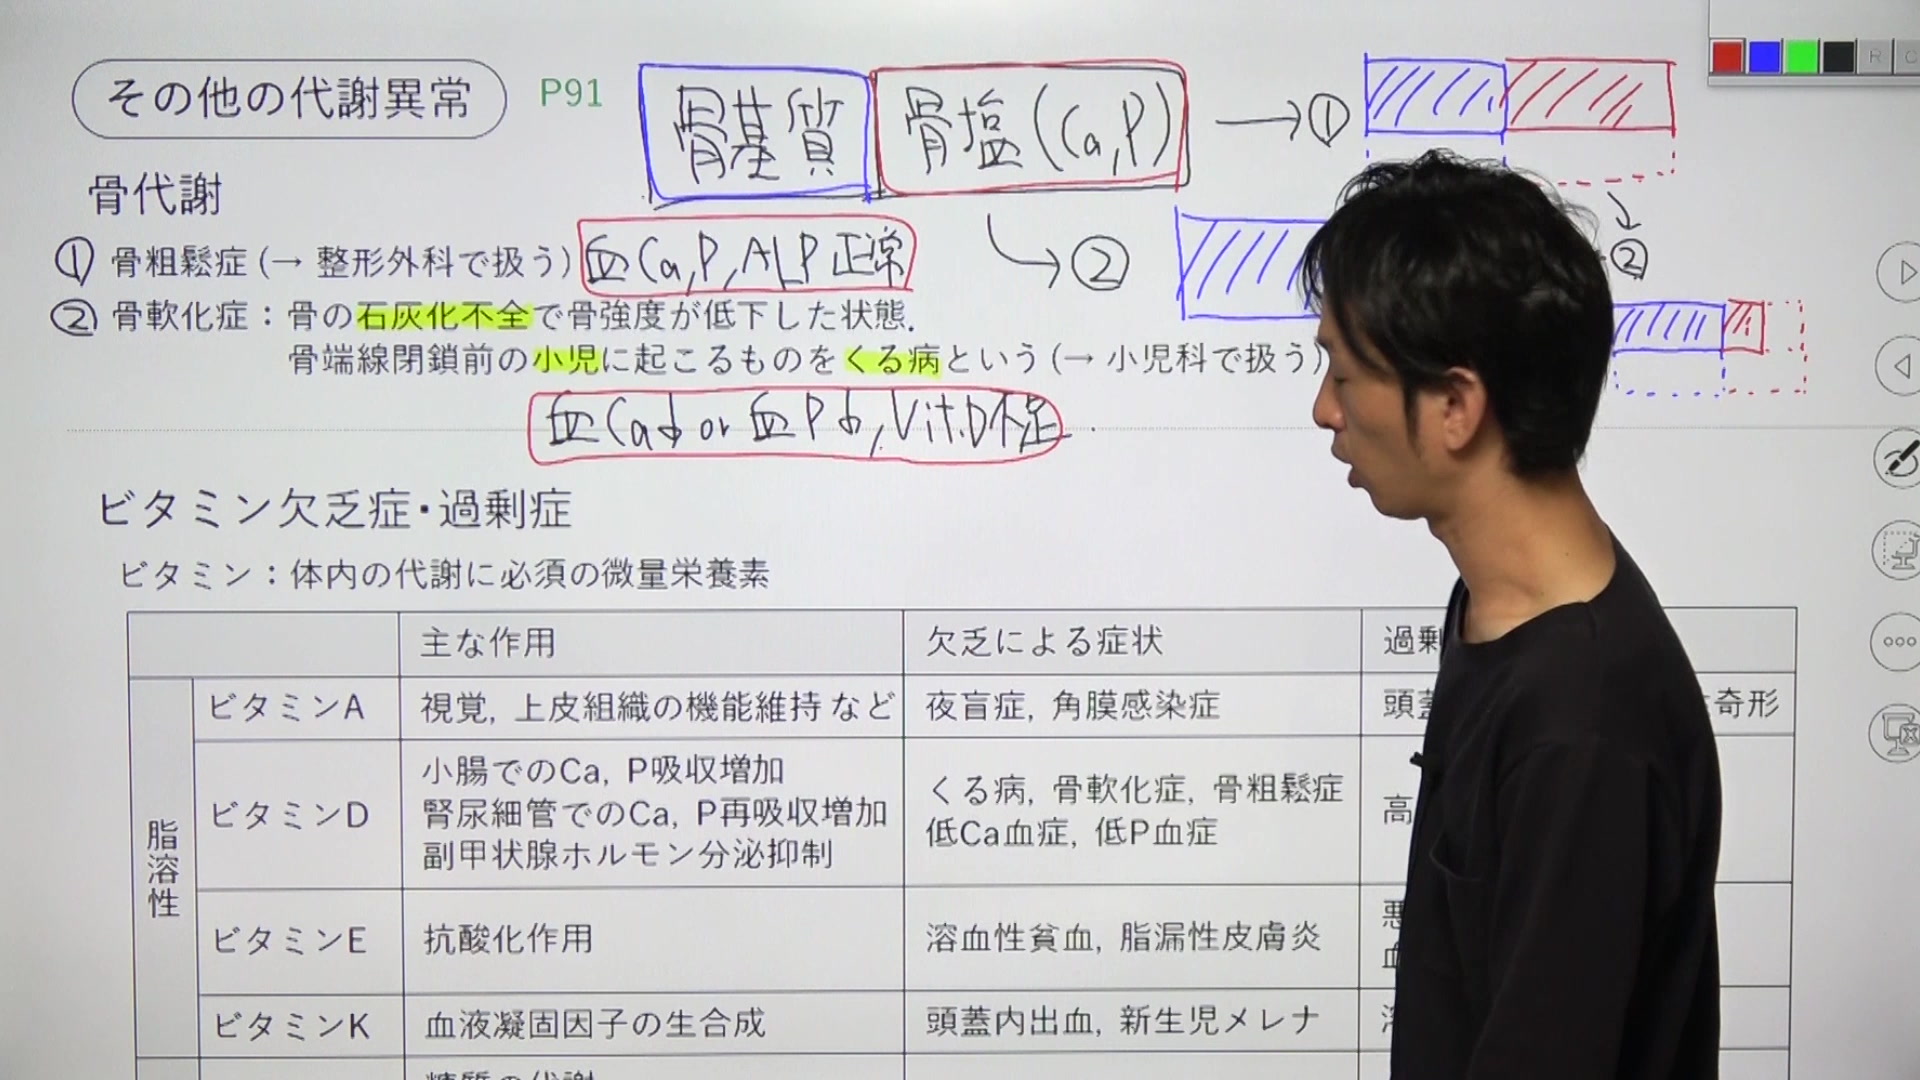 その他の代謝異常 P91
骨基質 骨塩(Ca,P) → ①
骨代謝
① 骨粗鬆症 (→ 整形外科で扱う) 血Ca,P,ALP正常
→ ② ②
② 骨軟化症：骨の石灰化不全で骨強度が低下した状態.
骨端線閉鎖前の小児に起こるものをくる病という (→ 小児科で扱う)
血Ca↓ or 血P↓, Vit.D不足
ビタミン欠乏症・過剰症
ビタミン：体内の代謝に必須の微量栄養素
主な作用 欠乏による症状 過剰
脂溶性
ビタミンA 視覚, 上皮組織の機能維持 など 夜盲症, 角膜感染症 頭蓋 奇形
ビタミンD
小腸でのCa, P吸収増加
腎尿細管でのCa, P再吸収増加
副甲状腺ホルモン分泌抑制
くる病, 骨軟化症, 骨粗鬆症
低Ca血症, 低P血症
高
ビタミンE 抗酸化作用 溶血性貧血, 脂漏性皮膚炎
悪
血
ビタミンK 血液凝固因子の生合成 頭蓋内出血, 新生児メレナ 溶
糖質の代謝
R C